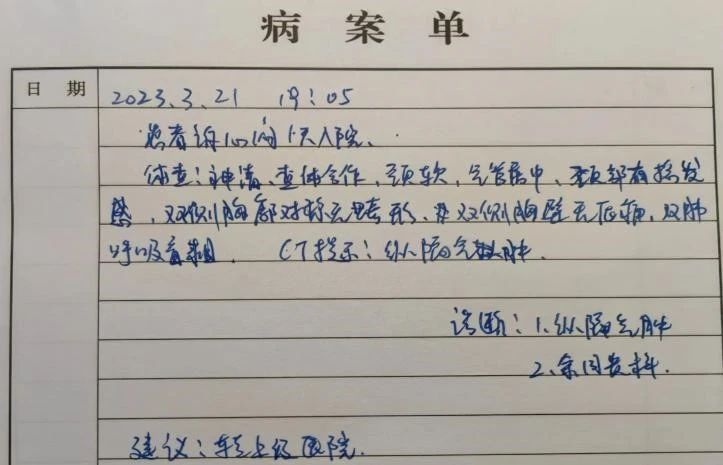 病案单
日期
2023.3.21 19:05
患者诉心闷1天入院、
体查:神清、查体合作,颈软,气管居中,颈部有捻发
感,双侧胸部对称无畸形、双侧胸壁无压痛,双肺
呼吸音粗. CT提示:纵隔气肿.
诊断:1.纵隔气肿
2、余同贵科.
建议:转上级医院.